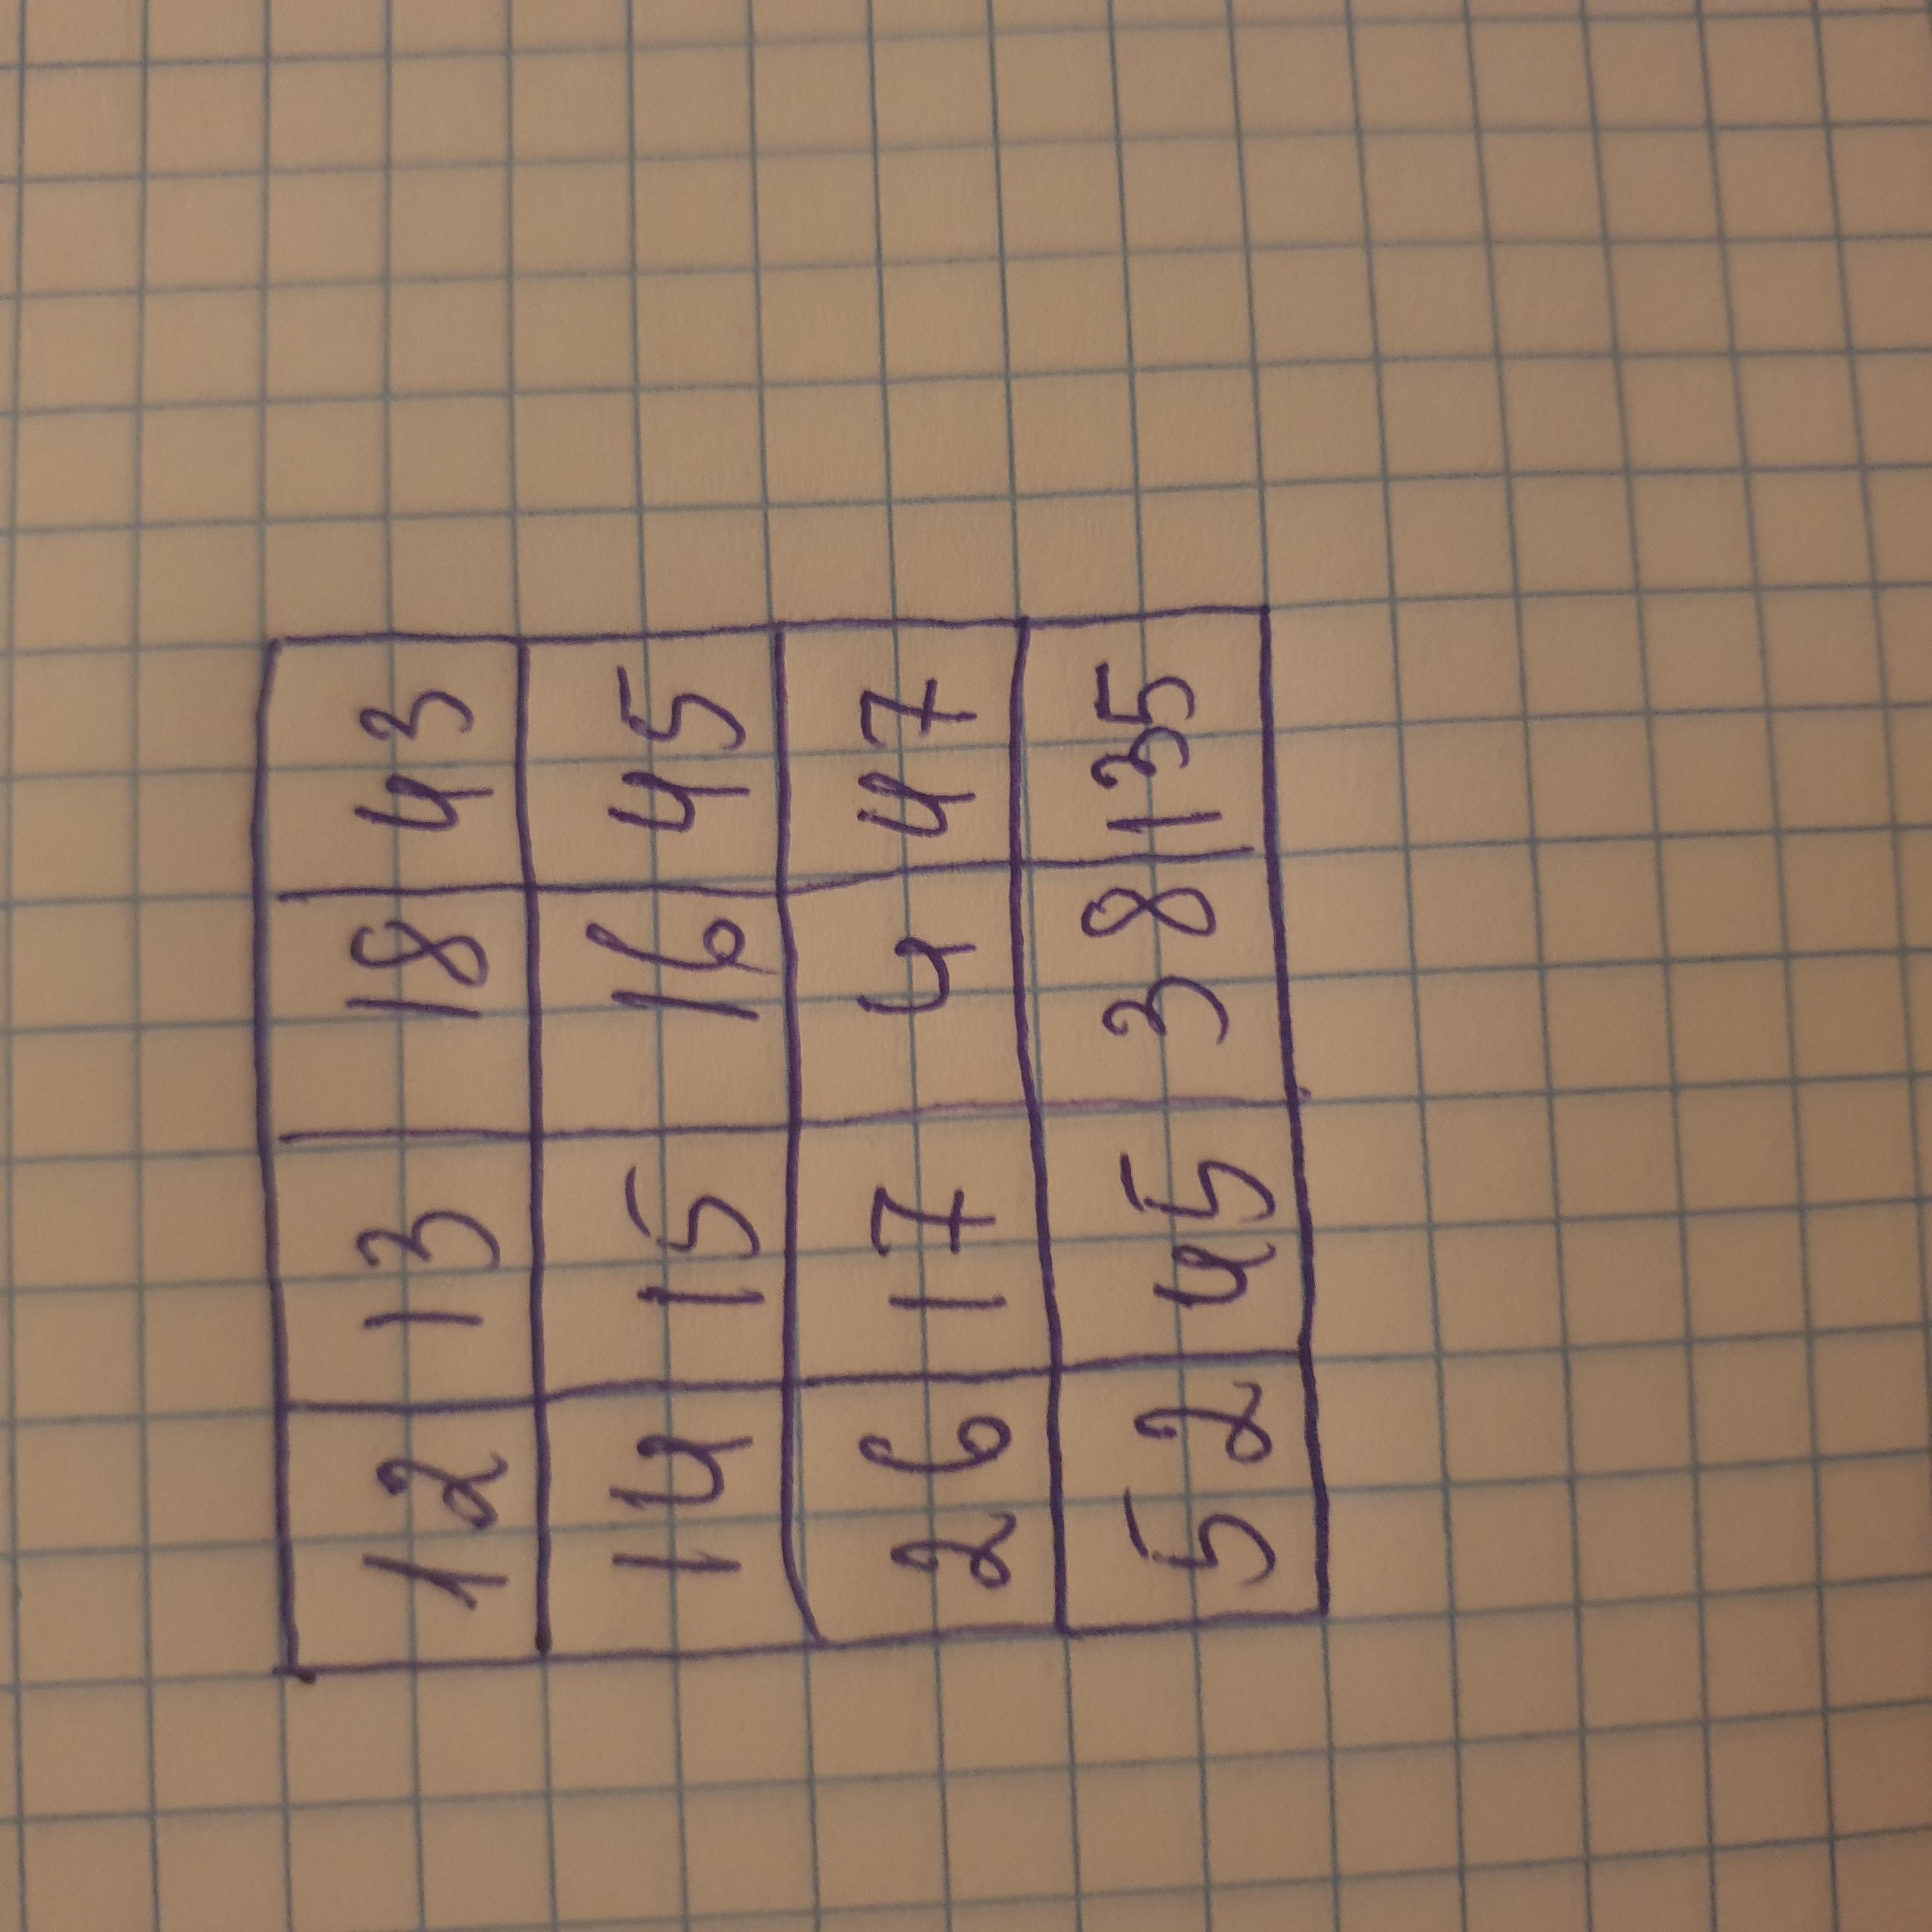 12 13 18 43
14 15 16 45
26 17 4 47
52 45 38 135